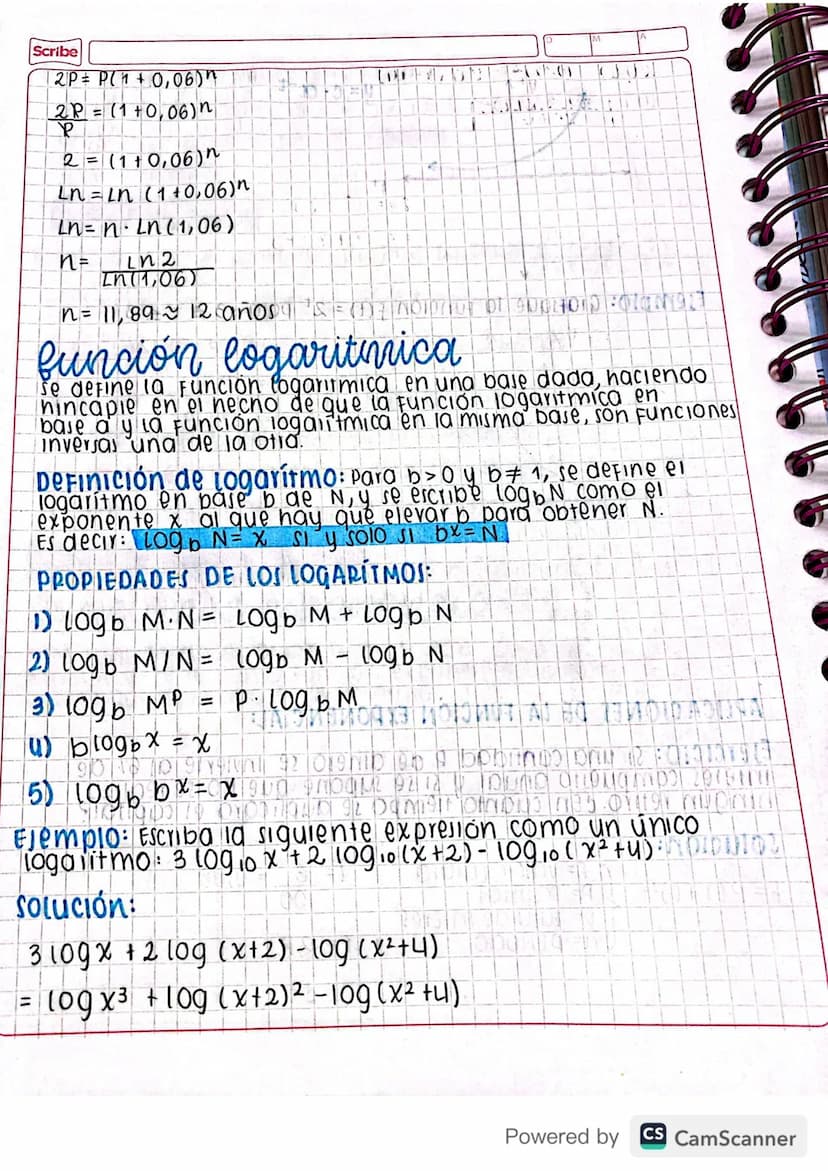 Scribe
D M A
2P = P(1 + 0,06)ⁿ
2P/P = (1 + 0,06)ⁿ
2 = (1 + 0,06)ⁿ
Ln = Ln (1+0,06)ⁿ
Ln = n · Ln (1,06)
n = Ln 2 / Ln(1,06)
n = 11,89 ≈ 12 años
función logaritmica
se define la función logaritmica en una base dada, haciendo
hincapie en el hecho de que la función logaritmica en
base a y la función logaritmica en la misma base, son funciones
inversas una de la otra.
Definición de logarítmo: para b > 0 y b ≠ 1, se define el
logaritmo en base b de N, y se escribe log_b N como el
exponente x al que hay que elevar b para obtener N.
Es decir: Log_b N = x si y solo si bˣ = N
PROPIEDADES DE LOS LOGARÍTMOS:
1) log_b M·N = Log_b M + Log_b N
2) log_b M/N = log_b M - log_b N
3) log_b Mᵖ = P · Log_b M
4) b^(log_b x) = x
5) log_b bˣ = x
Ejemplo: Escriba la siguiente expresión como un único
logaritmo: 3 log₁₀ x + 2 log₁₀ (x+2) - log₁₀ (x² + 4)
Solución:
3 log x + 2 log (x+2) - log (x²+4)
= log x³ + log (x+2)² - log (x² + 4)
Powered by CS CamScanner